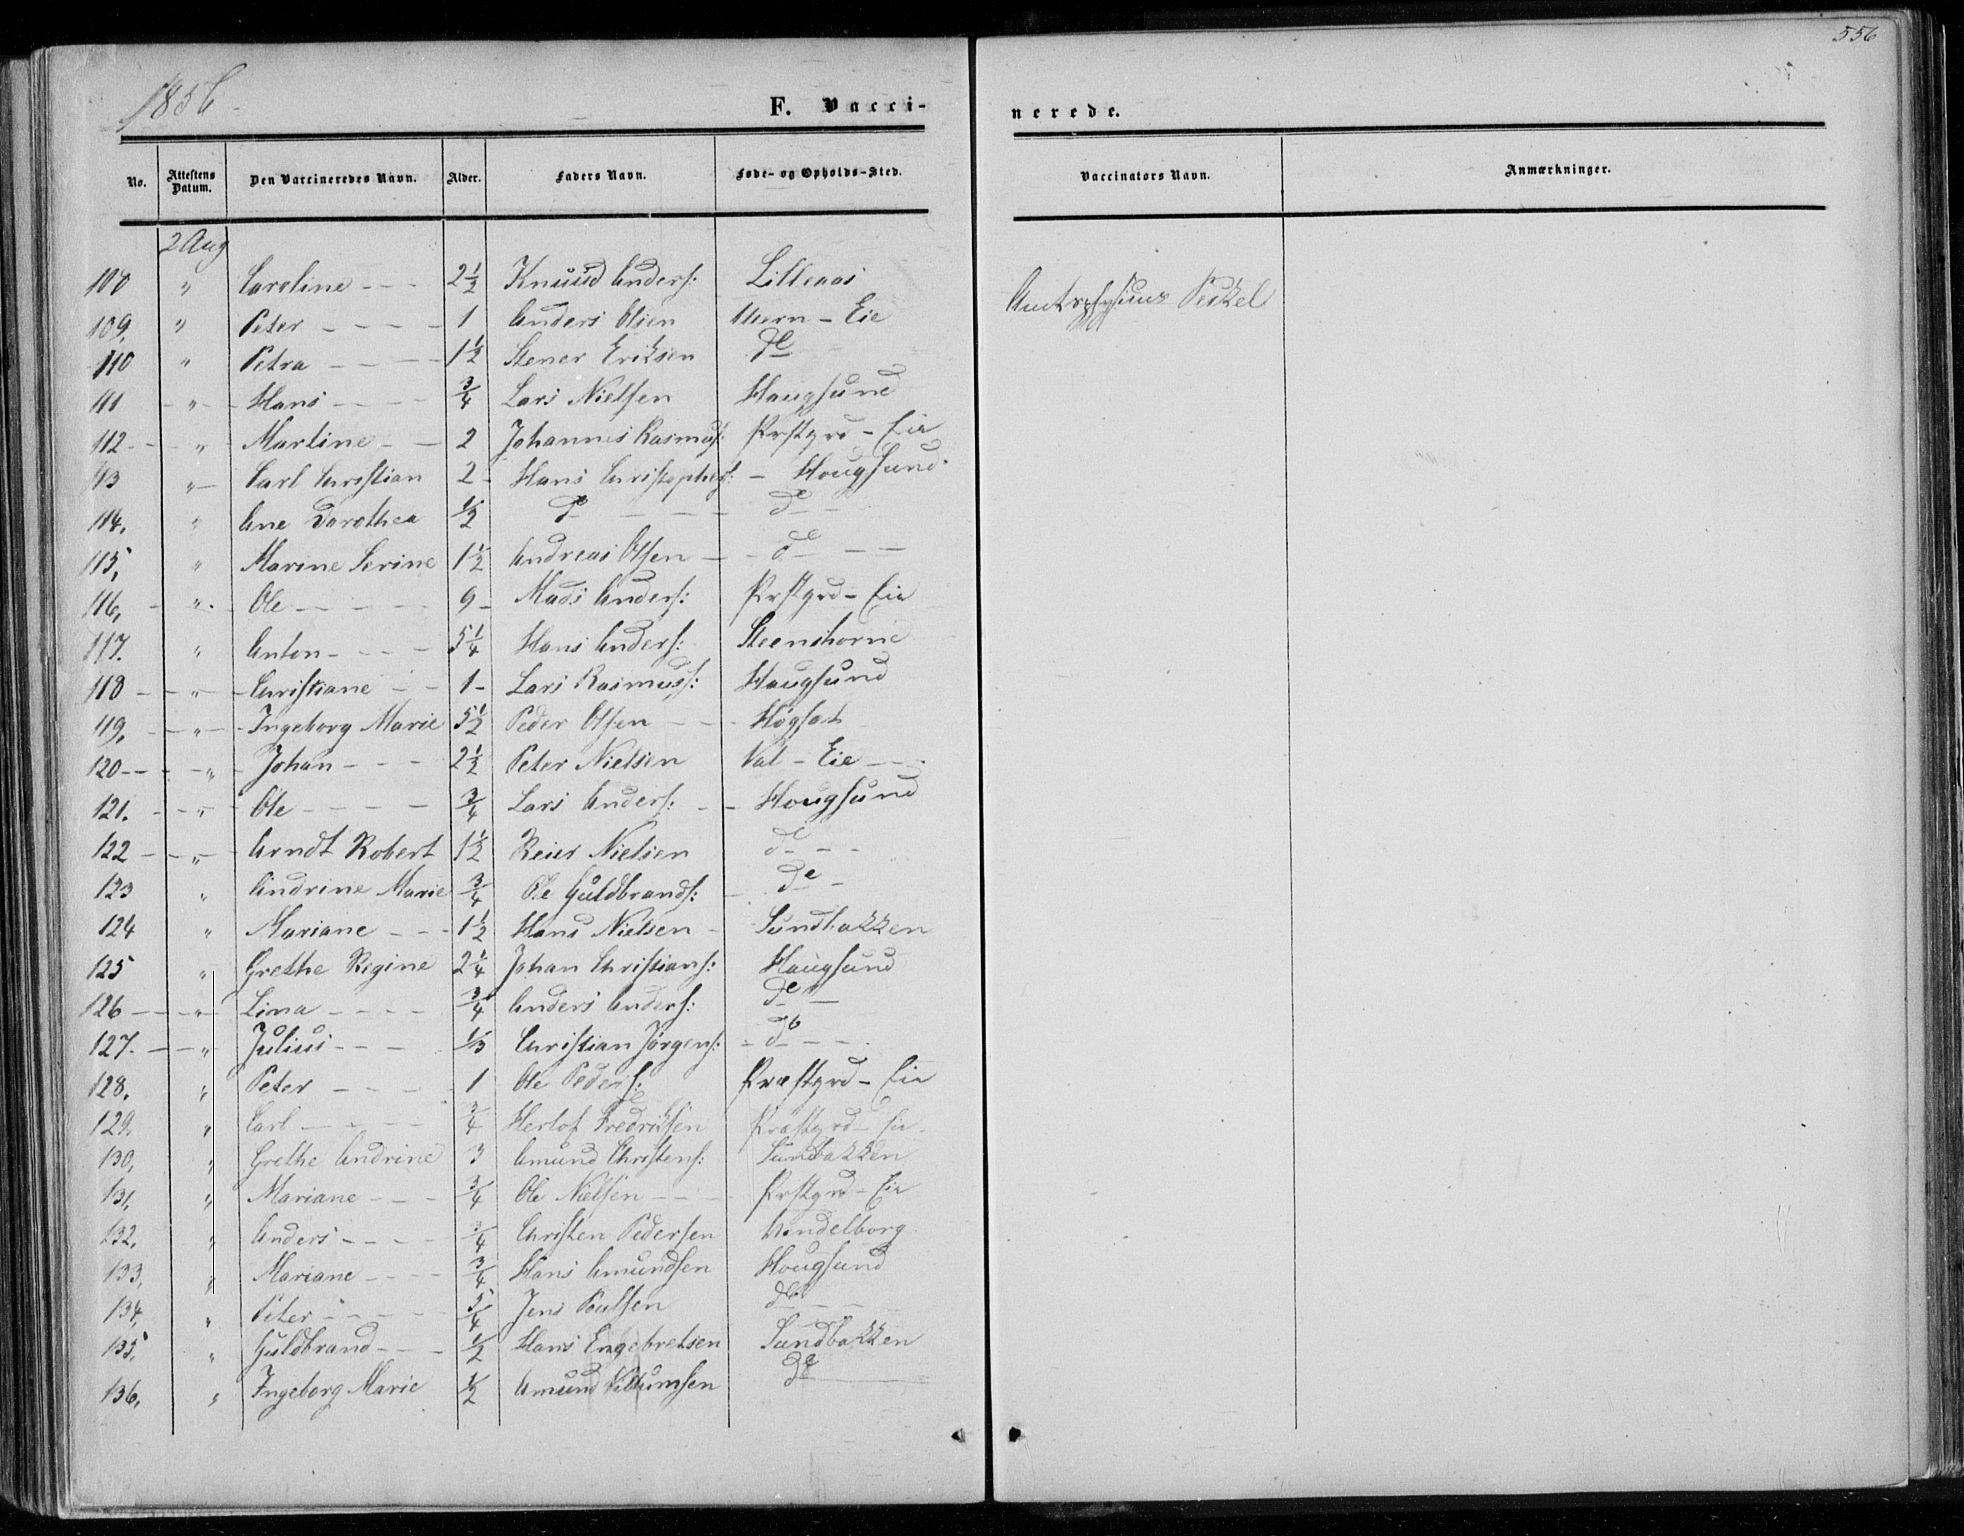 556
1856
F. Vaccinerede.
No. | Attestens Datum. | Den Vaccineredes Navn. | Alder. | Faders Navn. | Føde- og Opholds-Sted. | Vaccinators Navn. | Anmærkninger.
2 Aug
108 " Caroline - - - 2 1/2 Knuud Anders: Lilleaas Amtsphysicus
109, " Peter - - - - 1 Anders Olsen - Eie
110 " Petra - - - 1 1/2 Stener Eriksen do
111 - " - Hans - - - - 3/4 Lars Nielsen Haugsund
112 - - " Martine - - 2 Johannes Rasmus: Prstgrd - Eie
113 " - Carl Christian 2 - Hans Christophers: - Hougsund.
114, " Ane Dorothea 1/2 do - - - do - -
115, " Marine Serine 1 1/2 Andreas Olsen - - do - -
116, - " - Ole - - - - 9 - Mads Anders: Prstgrd - Eie
117. " Anton - - - - 5 1/4 Hans Anders: Steenshorne
118 - - " - Christiane - - 1 - Lars Rasmuss: Haugsund
119, - - " - Ingeborg Marie 5 1/2 Peder Olsen - - -
120 - - - " - Johan - - - 2 1/2 Peter Nielsen - Eie - - -
121. - - " Ole - - - - 3/4 Lars Anders: - - Hougsund
122 - - " - Arndt Robert 1 1/2 Reier Nielsen do - -
123 " Andrine Marie 3/4 Ole Guldbrands: - do -
124 " Mariane - - - 1 1/2 Hans Nielsen - Sundbakken
125 " Grethe Regine 2 1/4 Johan Christians: Haugsund
126 - - - " - Lina - - - - 3/4 Anders Anders: do -
127. - - " Julius - - - 1/3 Christian Jörgens: - do - - -
128. " Peter - - - - 1 Ole Peders: Præstgrd - Eie
129. " Carl - - - - 3/4 Herlof Fredriksen Præstgrd - Eie.
130, " Grethe Andrine 3 Amund Christens: Sundbakken
131, " Mariane - - - 3/4 Ole Nielsen - - - Prstgrd - Eie
132, " Anders - - - - 3/4 Christen Pedersen
133, " Mariane - - - - 3/4 Hans Amundsen Hougsund
134, " Peter - - - - 5/4 Jens Paulsen do - - -
135, " Guldbrand - - - 1/2 Hans Engebretsen Sundbakken
136, " Ingeborg Marie 1/2 Amund do